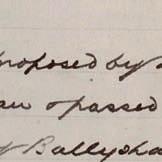 proposed by
& passed
Ballysha